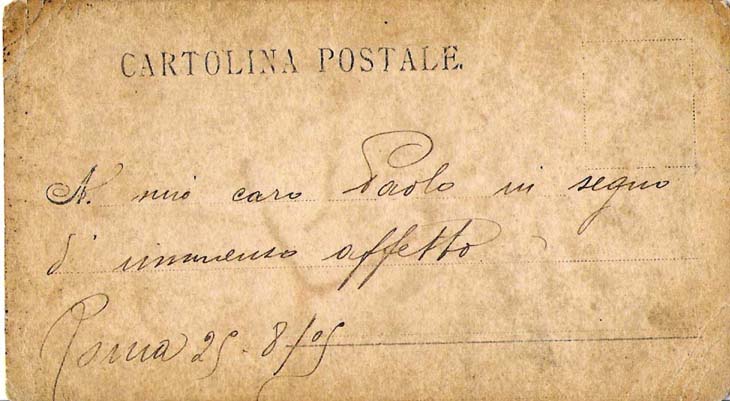 CARTOLINA POSTALE.
A. mio caro Paolo in segno
d' immenso affetto
Roma 25. 8/05